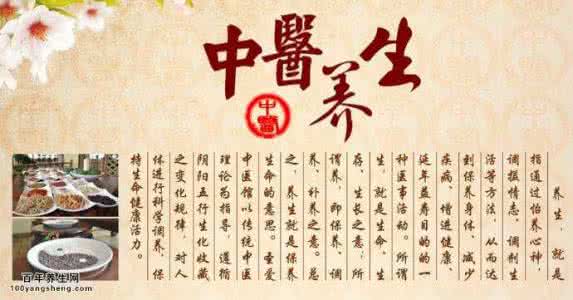 中醫养生
中醫
养生，就是
指通过怡养心神，
调摄情志、调剂生
活等方法，从而达
到保养身体、减少
疾病、增进健康、
延年益寿目的的一
种医事活动。所谓
生，就是生命、生
存、生长之意；所
谓养，即保养、调
养、补养之意。总
之，养生就是保养
生命的意思。圣爱
中医馆以传统中医
理论为指导，遵循
阴阳五行生化收藏
之变化规律，对人
体进行科学调养，保
持生命健康活力。
百年养生网
100yangsheng.com